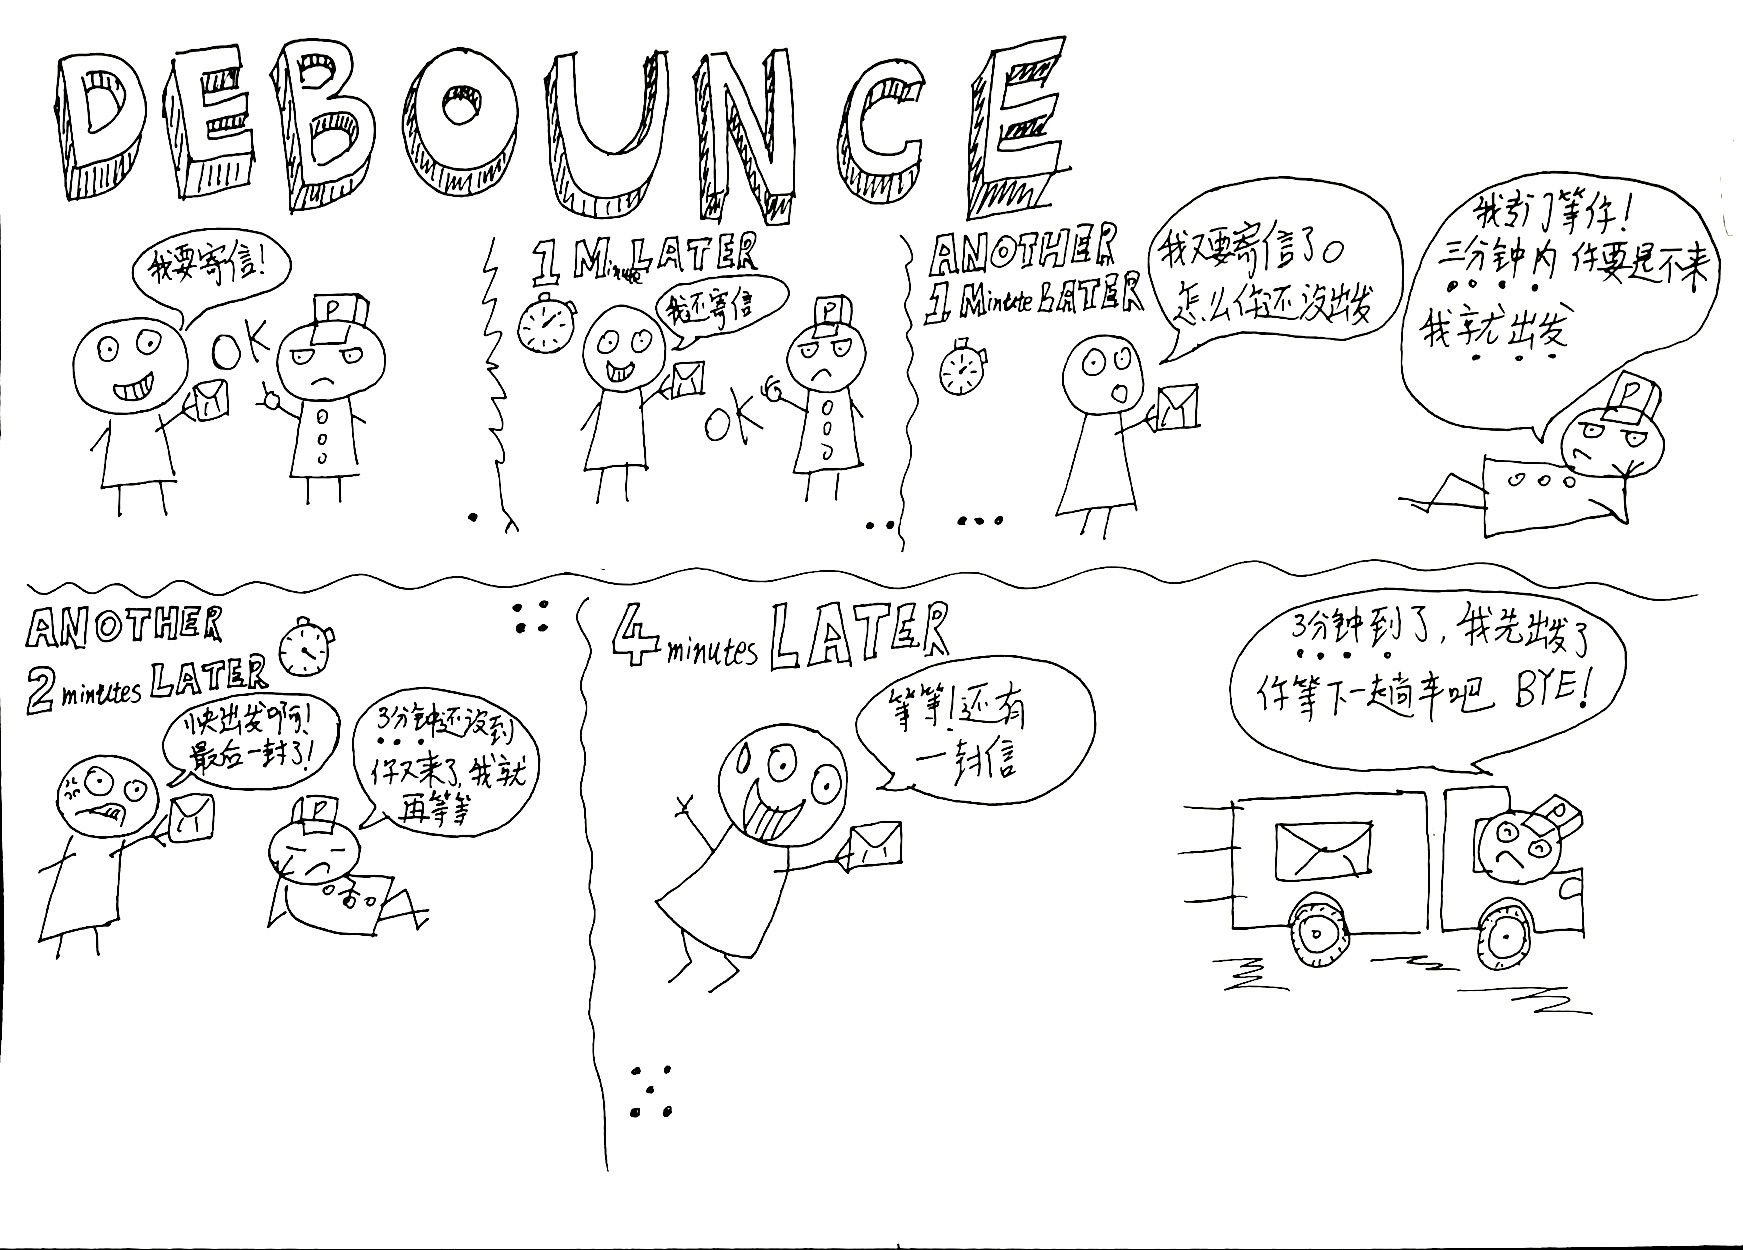 DEBOUNCE
我要寄信!
OK
P
1 Minute LATER
我还寄信
OK
P
ANOTHER
1 Minute LATER
我又要寄信了。
怎么你还没出发
三分钟内 你要是不来
我就出发
P
ANOTHER
2 minutes LATER
快出发啊!
最后一封了!
3分钟还没到
你又来了,我就
再等等
P
4 minutes LATER
等等!还有
一封信
3分钟到了,我先出发了
你等下一趟车吧 BYE!